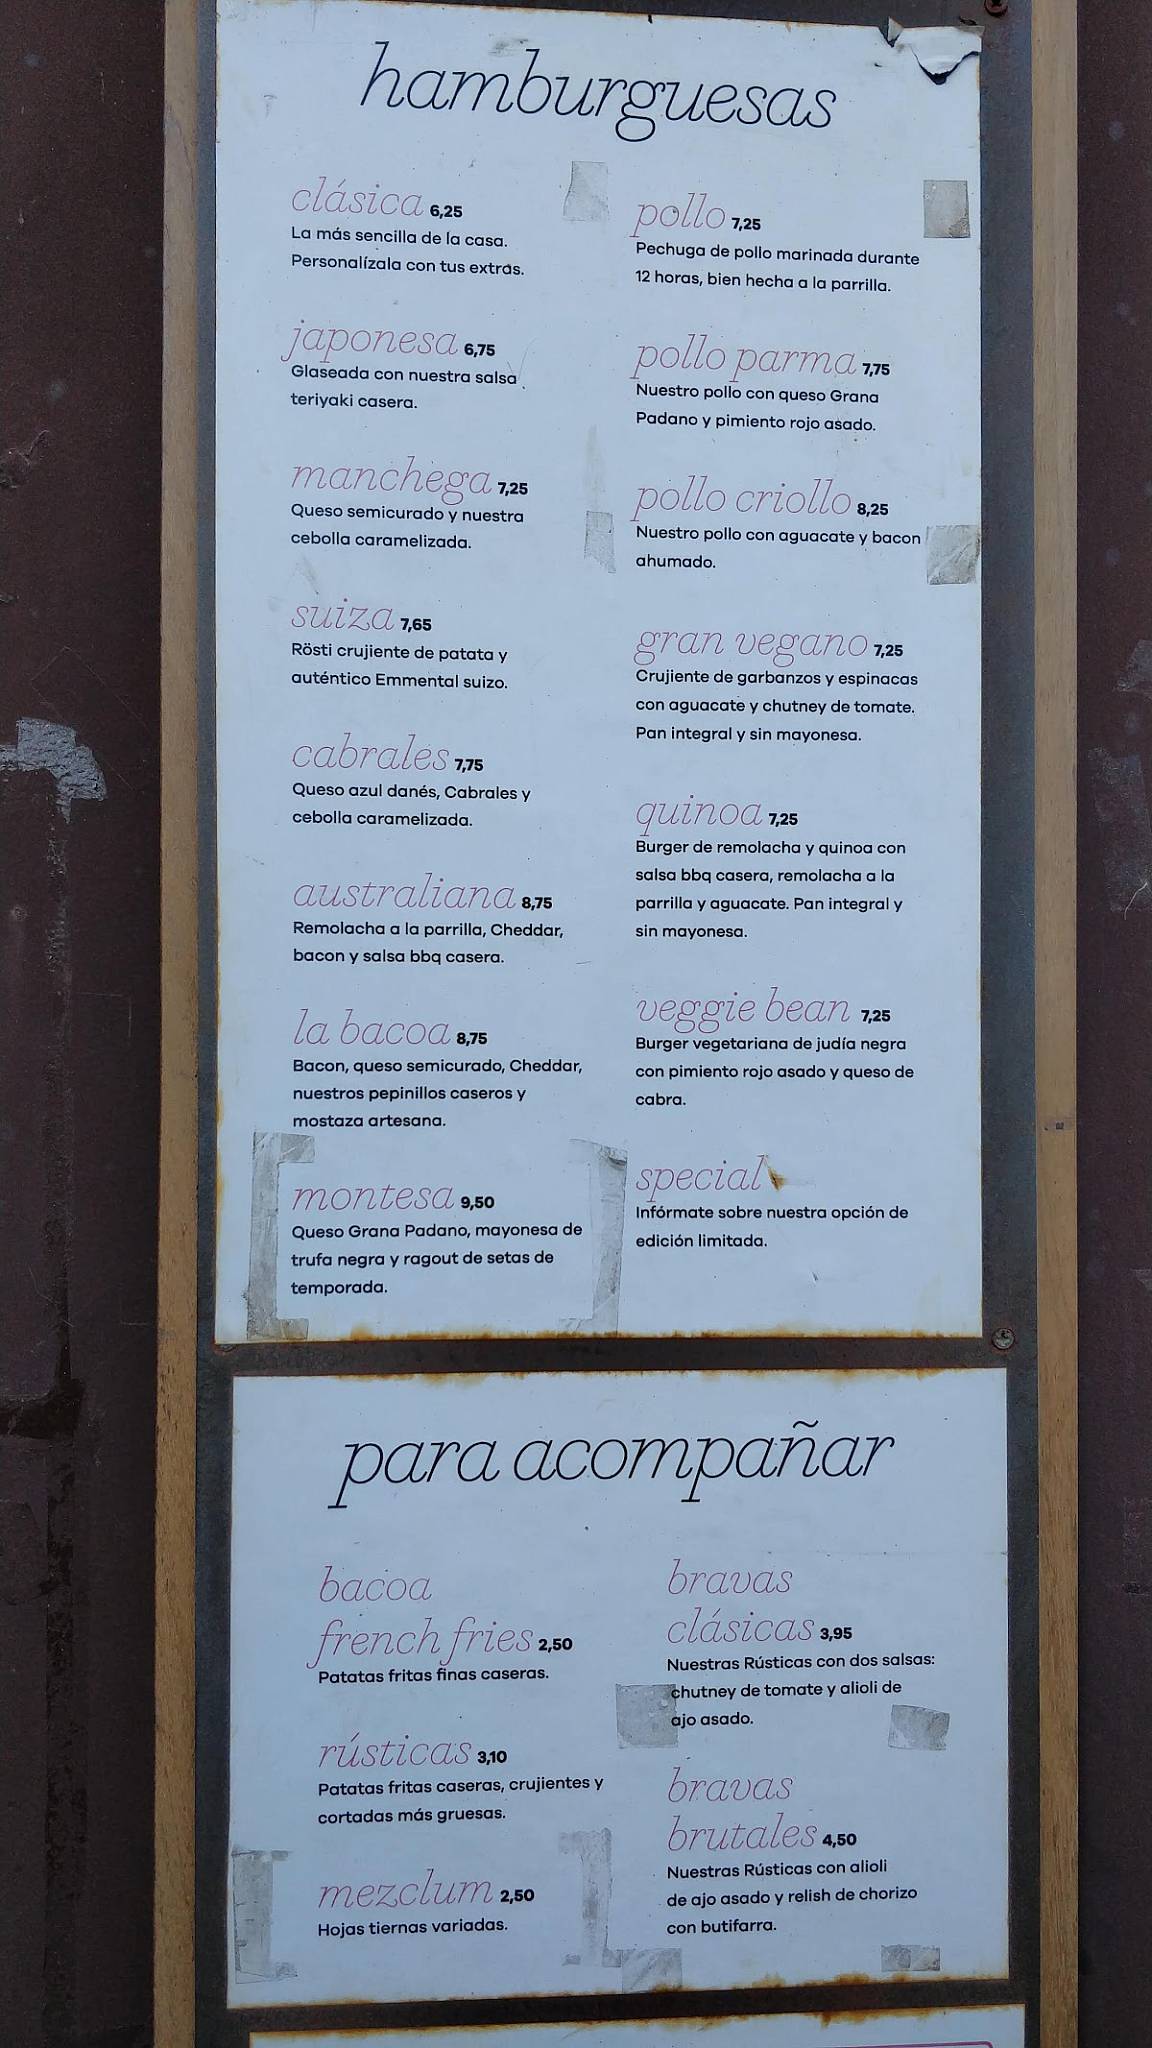 hamburguesas
clásica 6,25
La más sencilla de la casa.
Personalízala con tus extras.
japonesa 6,75
Glaseada con nuestra salsa
teriyaki casera.
manchega 7,25
Queso semicurado y nuestra
cebolla caramelizada.
suiza 7,65
Rösti crujiente de patata y
auténtico Emmental suizo.
cabrales 7,75
Queso azul danés, Cabrales y
cebolla caramelizada.
australiana 8,75
Remolacha a la parrilla, Cheddar,
bacon y salsa bbq casera.
la bacoa 8,75
Bacon, queso semicurado, Cheddar,
nuestros pepinillos caseros y
mostaza artesana.
montesa 9,50
Queso Grana Padano, mayonesa de
trufa negra y ragout de setas de
temporada.
pollo 7,25
Pechuga de pollo marinada durante
12 horas, bien hecha a la parrilla.
pollo parma 7,75
Nuestro pollo con queso Grana
Padano y pimiento rojo asado.
pollo criollo 8,25
Nuestro pollo con aguacate y bacon
ahumado.
gran vegano 7,25
Crujiente de garbanzos y espinacas
con aguacate y chutney de tomate.
Pan integral y sin mayonesa.
quinoa 7,25
Burger de remolacha y quinoa con
salsa bbq casera, remolacha a la
parrilla y aguacate. Pan integral y
sin mayonesa.
veggie bean 7,25
Burger vegetariana de judía negra
con pimiento rojo asado y queso de
cabra.
special
Infórmate sobre nuestra opción de
edición limitada.
para acompañar
bacoa
french fries 2,50
Patatas fritas finas caseras.
rústicas 3,10
Patatas fritas caseras, crujientes y
cortadas más gruesas.
mezclum 2,50
Hojas tiernas variadas.
bravas
clásicas 3,95
Nuestras Rústicas con dos salsas:
chutney de tomate y alioli de
ajo asado.
bravas
brutales 4,50
Nuestras Rústicas con alioli
de ajo asado y relish de chorizo
con butifarra.